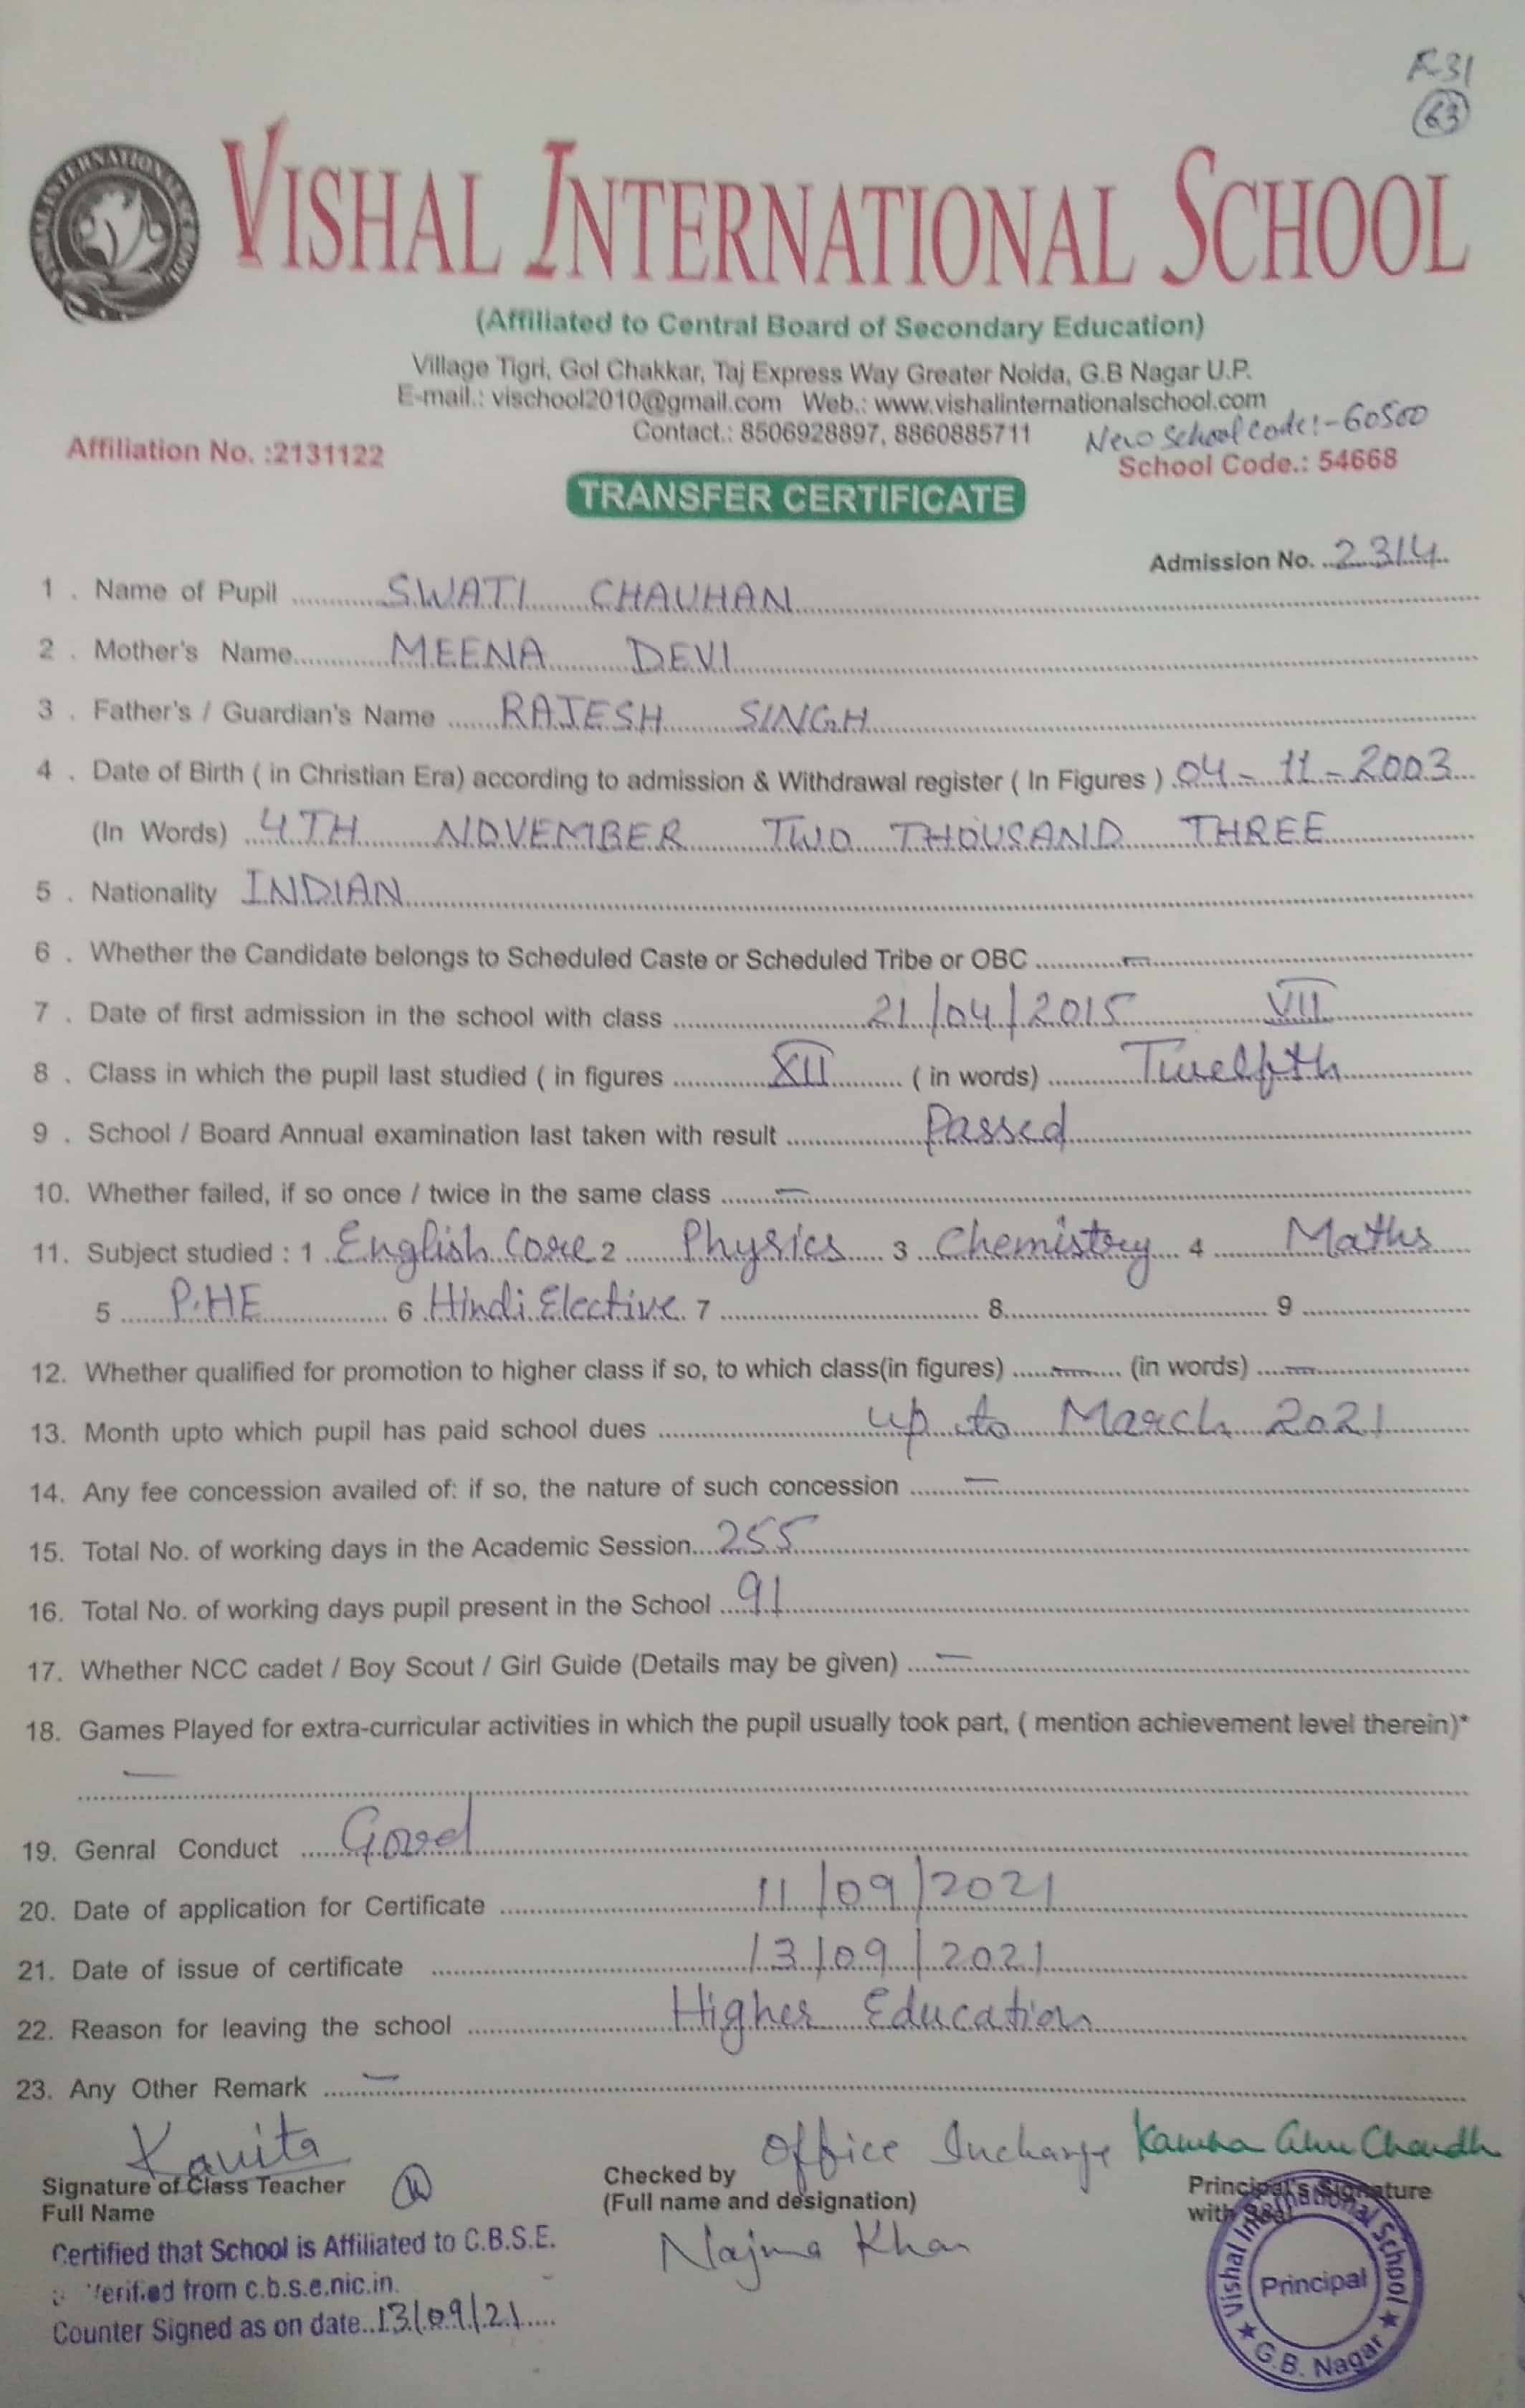 F-31
63
VISHAL INTERNATIONAL SCHOOL
(Affiliated to Central Board of Secondary Education)
Village Tigri, Gol Chakkar, Taj Express Way Greater Noida, G.B Nagar U.P.
E-mail.: vischool2010@gmail.com Web.: www.vishalinternationalschool.com
Contact.: 8506928897, 8860885711
New School Code:-60500
Affiliation No. :2131122 School Code.: 54668
TRANSFER CERTIFICATE
Admission No. 2314
1 . Name of Pupil SWATI CHAUHAN
2 . Mother's Name MEENA DEVI
3 . Father's / Guardian's Name RAJESH SINGH
4 . Date of Birth ( in Christian Era) according to admission & Withdrawal register ( In Figures ) 04-11-2003
(In Words) 4TH NOVEMBER TWO THOUSAND THREE
5 . Nationality INDIAN
6 . Whether the Candidate belongs to Scheduled Caste or Scheduled Tribe or OBC —
7 . Date of first admission in the school with class 21/04/2015 VII
8 . Class in which the pupil last studied ( in figures XII ( in words) Twelfth
9 . School / Board Annual examination last taken with result Passed
10. Whether failed, if so once / twice in the same class —
11. Subject studied : 1 English Core 2 Physics 3 Chemistry 4 Maths
5 P.HE 6 Hindi Elective 7 8 9
12. Whether qualified for promotion to higher class if so, to which class(in figures) — (in words) —
13. Month upto which pupil has paid school dues up to March 2021
14. Any fee concession availed of: if so, the nature of such concession —
15. Total No. of working days in the Academic Session 255
16. Total No. of working days pupil present in the School 91
17. Whether NCC cadet / Boy Scout / Girl Guide (Details may be given) —
18. Games Played for extra-curricular activities in which the pupil usually took part, ( mention achievement level therein)*
—
19. Genral Conduct Good
20. Date of application for Certificate 11/09/2021
21. Date of issue of certificate 13/09/2021
22. Reason for leaving the school Higher Education
23. Any Other Remark —
Kavita Office Incharge
Signature of Class Teacher Checked by Principal's Signature
Full Name (Full name and designation) with Seal
Najma Khan
Certified that School is Affiliated to C.B.S.E.
Verified from c.b.s.e.nic.in.
Counter Signed as on date 13/09/21
Vishal International School
Principal
★ G.B. Nagar ★